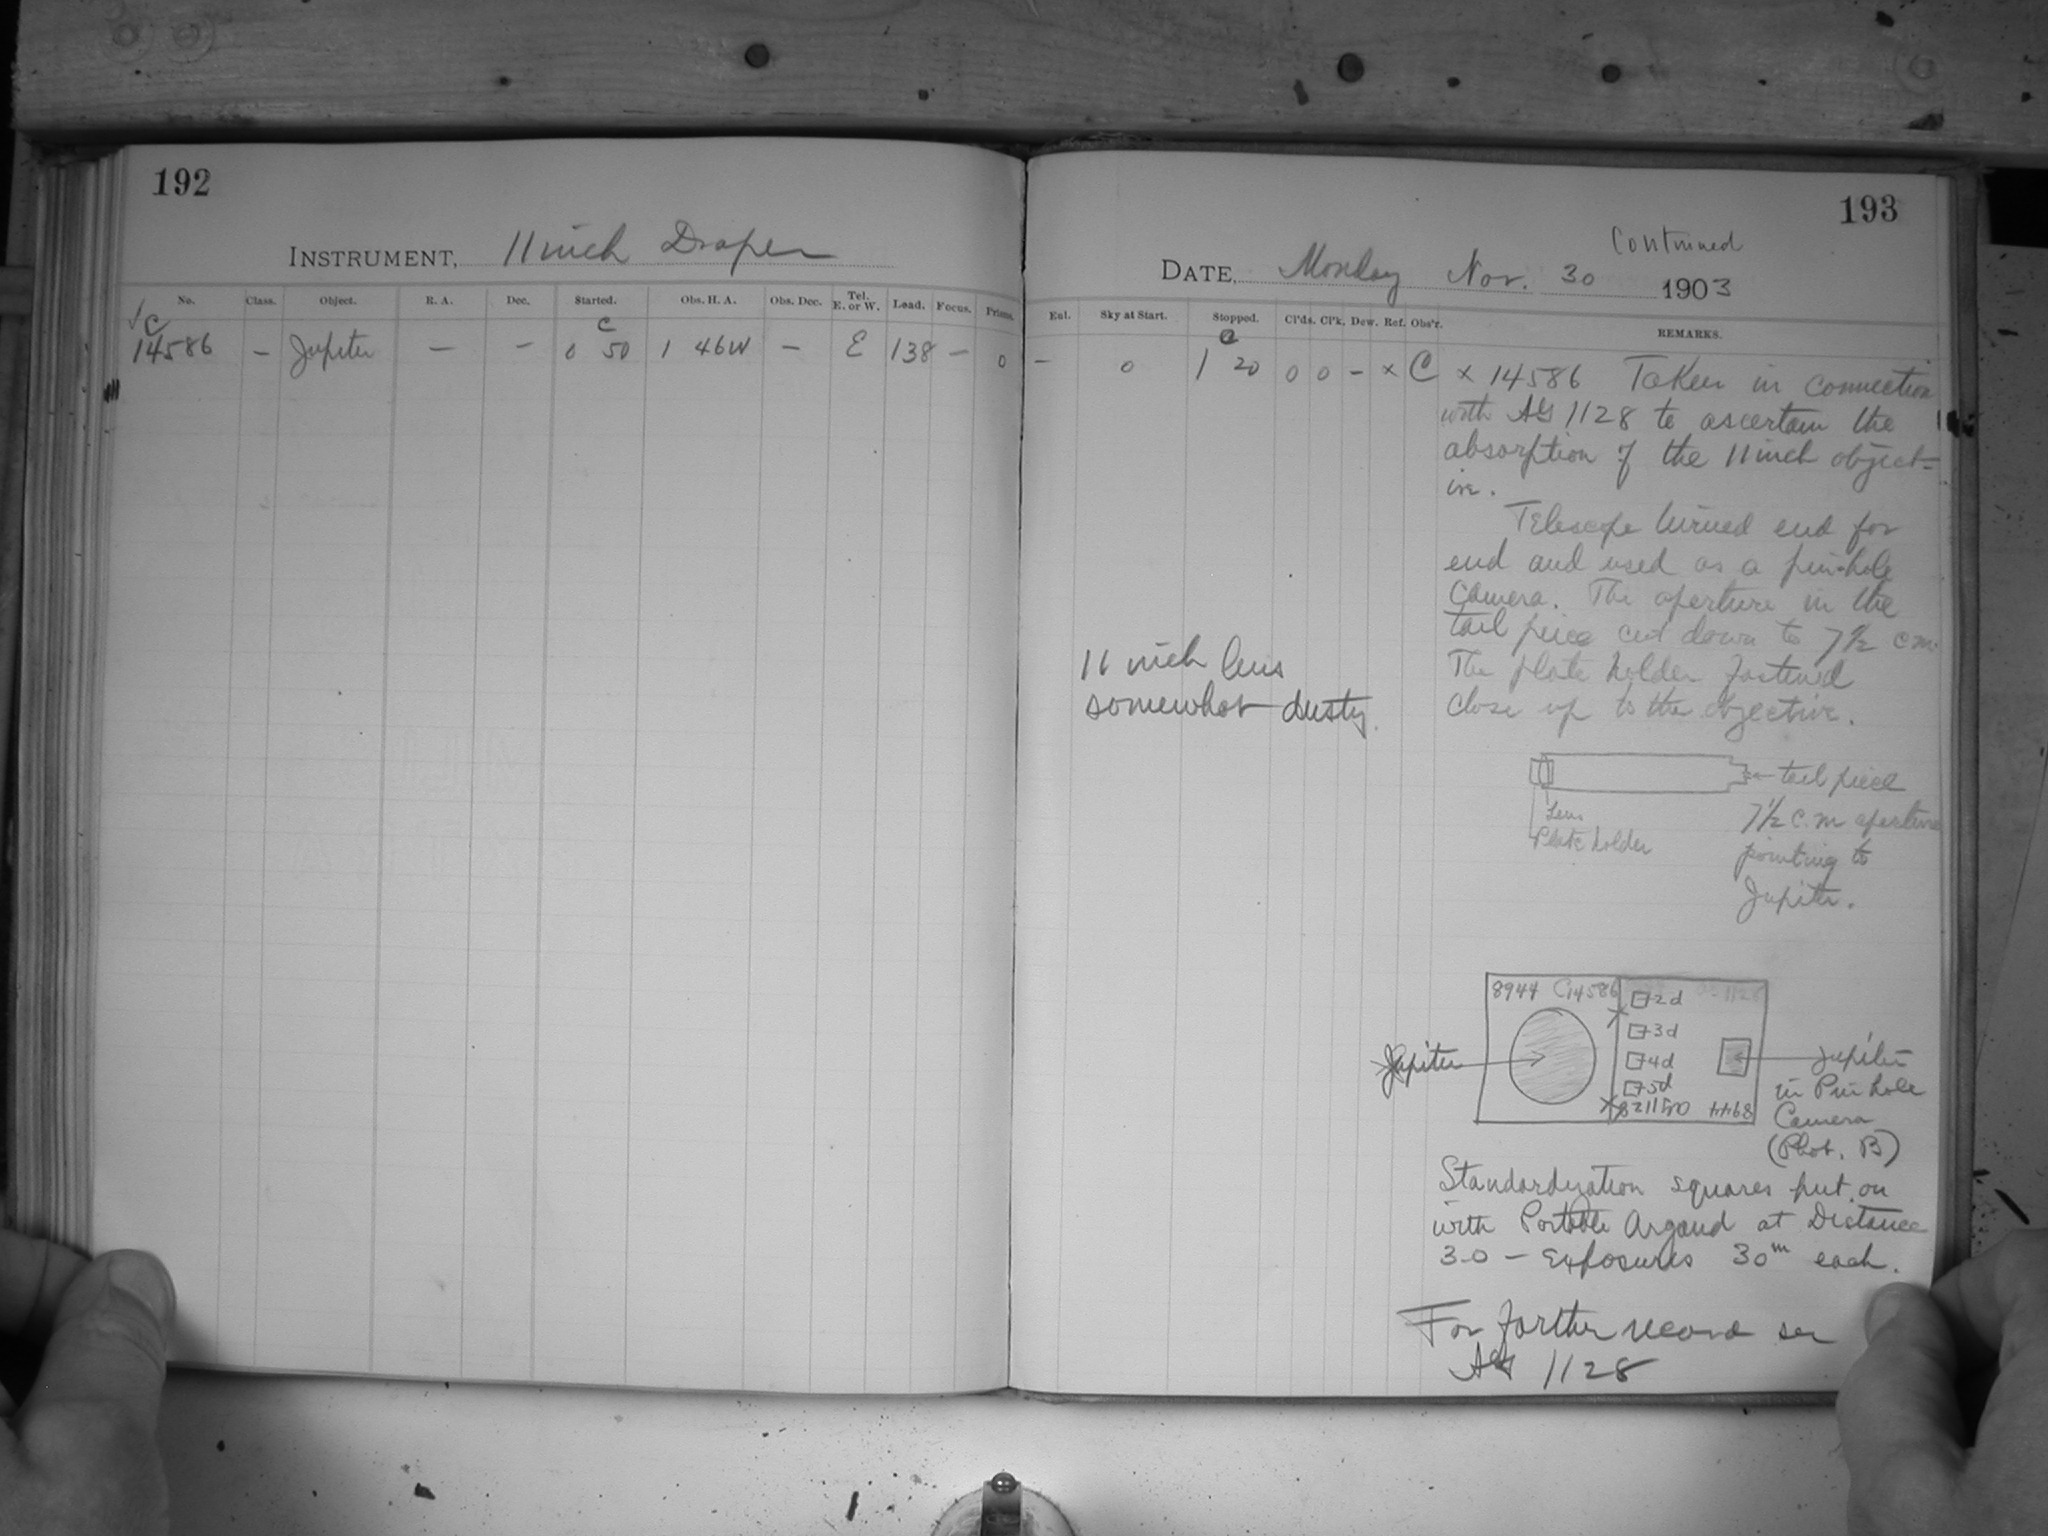 192
INSTRUMENT, 11 inch Draper
No. Class. Object. R. A. Dec. Started. Obs. H. A. Obs. Dec. Tel. E. or W. Load. Focus. Prisms.
√ C C
14586 – Jupiter – – 0 50 1 46W – E 138 – 0
193
Continued
DATE, Monday Nov. 30 1903
Eul. Sky at Start. Stopped. Cl'ds. Cl'k. Dew. Ref. Obs'r. REMARKS.
– 0 1 20 0 0 – × C × 14586 Taken in connection
with AG 1128 to ascertain the
absorption of the 11 inch object=
ive.
Telescope turned end for
end and used as a pin-hole
Camera. The aperture in the
tail piece cut down to 7½ c m.
The plate holder fastened
close up to the objective.
11 inch lens
somewhat dusty.
tail piece
7½ c.m aperture
pointing to
Jupiter.
Lens
Plate holder
8944 C14586 1128
2d
3d
4d
5d
8944
Jupiter
Jupiter
in Pin hole
Camera
(Phot. B)
Standardization squares put on
with Portable Argand at Distance
3.0 – Exposures 30m each.
For further record see
AG 1128